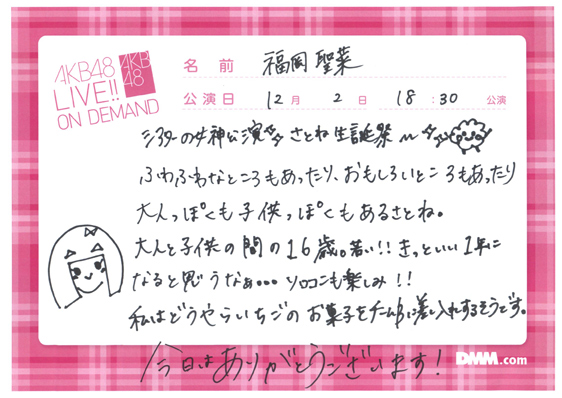 AKB48
LIVE!!
ON DEMAND
AKB
48
名 前 福岡 聖菜
公演日 12月 2日 18:30 公演
シアターの女神公演 さとね生誕祭
ふわふわなところもあったり、おもしろいところもあったり
大人っぽくも子供っぽくもあるさとね。
大人と子供の間の16歳。若い!! きっといい1年に
なると思うなぁ... ソロコンも楽しみ!!
私はどうやらいちごのお菓子をチームBに差し入れするそうです。
今日はありがとうございます!
DMM.com